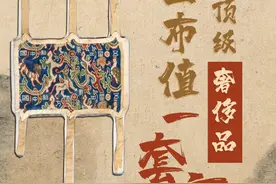 顶级
奢侈品
布值
一套